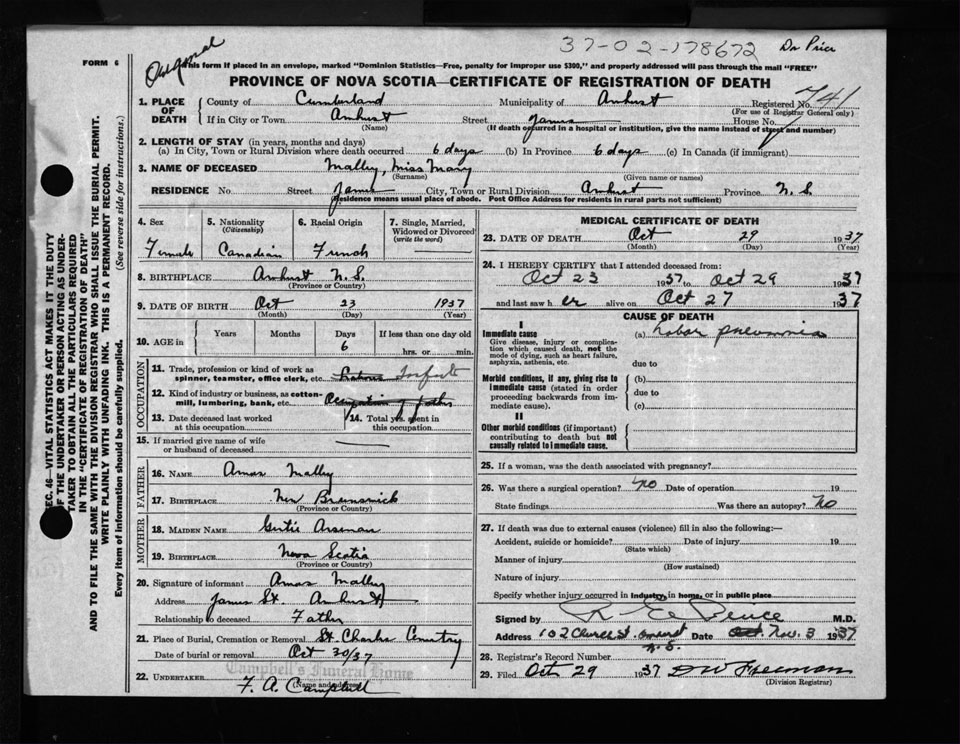 37-02-178672
Dr Price
Original
FORM 6
This form if placed in an envelope, marked "Dominion Statistics—Free, penalty for improper use $300," and properly addressed will pass through the mail "FREE"
PROVINCE OF NOVA SCOTIA—CERTIFICATE OF REGISTRATION OF DEATH
1. PLACE OF DEATH
County of Cumberland Municipality of Amherst Registered No. 741
(For use of Registrar General only)
If in City or Town Amherst Street James House No.
(Name) (If death occurred in a hospital or institution, give the name instead of street and number)
2. LENGTH OF STAY (in years, months and days)
(a) In City, Town or Rural Division where death occurred 6 days (b) In Province 6 days (c) In Canada (if immigrant)
3. NAME OF DECEASED Malley, Miss Mary
(Surname) (Given name or names)
RESIDENCE No. Street James City, Town or Rural Division Amherst Province N. S
(Residence means usual place of abode. Post Office Address for residents in rural parts not sufficient)
4. Sex
Female
5. Nationality
(Citizenship)
Canadian
6. Racial Origin
French
7. Single, Married, Widowed or Divorced
(write the word)
8. BIRTHPLACE Amherst N. S.
(Province or Country)
9. DATE OF BIRTH Oct 23 1937
(Month) (Day) (Year)
10. AGE in
Years
Months
Days
6
If less than one day old
hrs. or min.
OCCUPATION
11. Trade, profession or kind of work as
spinner, teamster, office clerk, etc.
12. Kind of industry or business, as cotton-
mill, lumbering, bank, etc. Occupation of father
13. Date deceased last worked
at this occupation
14. Total yrs. spent in
this occupation
15. If married give name of wife
or husband of deceased
FATHER
16. NAME Amos Malley
17. BIRTHPLACE New Brunswick
(Province or Country)
MOTHER
18. MAIDEN NAME Gertie Arseneau
19. BIRTHPLACE Nova Scotia
(Province or Country)
20. Signature of informant Amos Malley
Address James St. Amherst
Relationship to deceased Father
21. Place of Burial, Cremation or Removal St. Charles Cemetry
Date of burial or removal Oct 30/37
Campbell's Funeral Home
22. UNDERTAKER F. A. Campbell
(Name and address)
MEDICAL CERTIFICATE OF DEATH
23. DATE OF DEATH Oct 29 1937
(Month) (Day) (Year)
24. I HEREBY CERTIFY that I attended deceased from:
Oct 23 1937 to Oct 29 1937
and last saw her alive on Oct 27 1937
CAUSE OF DEATH
I
Immediate cause
Give disease, injury or compli-
cation which caused death, not the
mode of dying, such as heart failure,
asphyxia, asthenia, etc.
(a) Lobar pneumonia
due to
Morbid conditions, if any, giving rise to
immediate cause (stated in order
proceeding backwards from im-
mediate cause).
(b)
due to
(c)
II
Other morbid conditions (if important)
contributing to death but not
causally related to immediate cause.
25. If a woman, was the death associated with pregnancy?
26. Was there a surgical operation? No Date of operation 19
State findings Was there an autopsy? No
27. If death was due to external causes (violence) fill in also the following:—
Accident, suicide or homicide? Date of injury 19
(State which)
Manner of injury
(How sustained)
Nature of injury
Specify whether injury occurred in industry, in home, or in public place
Signed by R E Price M.D.
Address 102 Church St. Amherst N. S. Date Oct. Nov. 3 1937
28. Registrar's Record Number
29. Filed Oct 29 1937 Freeman
(Division Registrar)
SEC. 46— VITAL STATISTICS ACT MAKES IT THE DUTY
OF THE UNDERTAKER OR PERSON ACTING AS UNDER-
TAKER TO OBTAIN ALL THE PARTICULARS REQUIRED
IN THE "CERTIFICATE OF REGISTRATION OF DEATH"
AND TO FILE THE SAME WITH THE DIVISION REGISTRAR WHO SHALL ISSUE THE BURIAL PERMIT.
WRITE PLAINLY WITH UNFADING INK. THIS IS A PERMANENT RECORD.
Every item of Information should be carefully supplied. (See reverse side for instructions.)